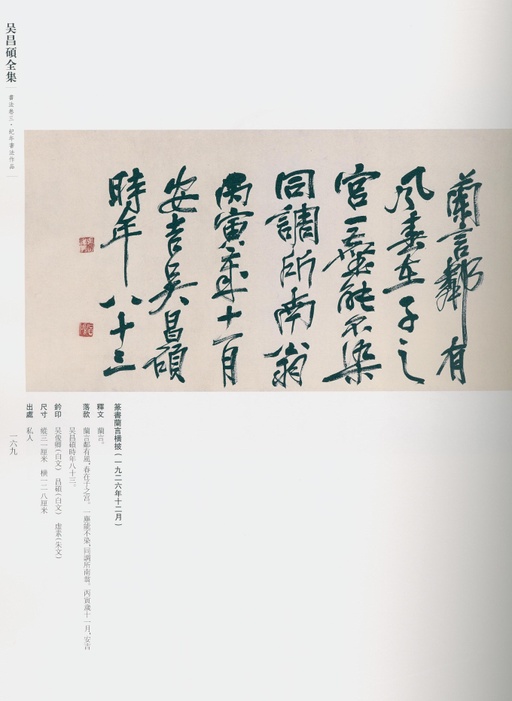 吴昌碩全集
書法卷三·紀年書法作品
蘭言鄰有
風春在子之
宮一塵能不染
同調所南翁
丙寅歲十一月
安吉吴昌碩
時年八十三
篆書蘭言橫披(一九二六年十二月)
釋文 蘭言。
落款 蘭言鄰有風,春在子之宮。一塵能不染,同調所南翁。丙寅歲十一月,安吉
吴昌碩時年八十三。
鈐印 吴俊卿(白文) 昌碩(白文) 虚素(朱文)
尺寸 縱三一厘米 橫一二八厘米
出處 私人
一六九